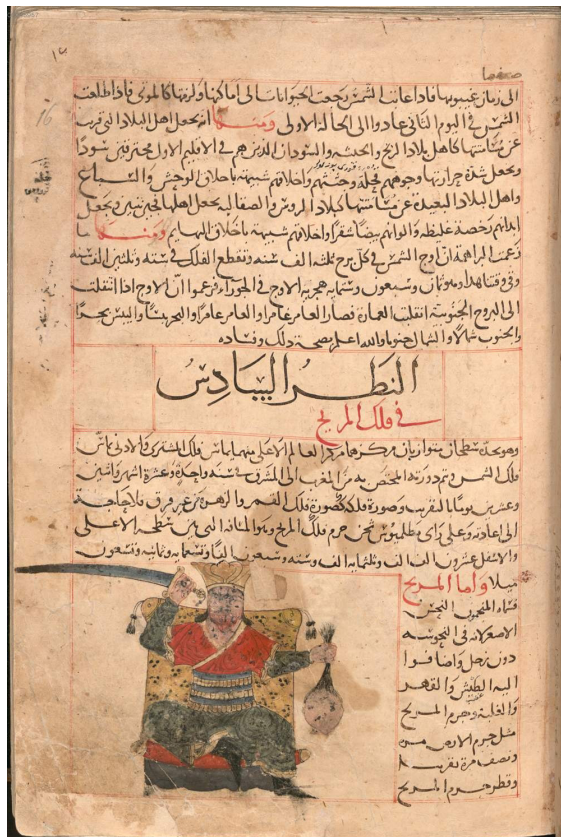 الى زمان غيبوبتها فاذا غابت الشمس رجعت الحيوانات الى اماكنها ولزمتها كالموتى فاذا طلعت
الشمس فى اليوم الثانى عادوا الى الحالة الاولى ومنها انه يجعل اهل البلاد التى قريبة
عن مسامتتها كاهل بلاد الزنج والحبشه والسودان الذين هم فى الاقليم الاول محترقين سودا
ويجعل شدة حرارتها وجوههم قحلة وجثتهم واخلاقهم شبيهة باخلاق الوحش والسباع
واهل البلاد البعيدة عن مسامتتها كبلاد الروس والصقالبه يجعل اهلها فجين نيين ويجعل
ابدانهم رخصة غليظه والوانهم بيضا شقرا واخلاقهم شبيهة باخلاق البهايم ومنها ما
زعمت البراهمة ان اوج الشمس فى كل برج ثلثة الف سنه وتقطع الفلك فى ستة وثلثين الف سنه
وفى وقتنا هذا وهو ثمان وسبعون وستمايه هجرية الاوج فى الجوزاء فزعموا ان الاوج اذا انتقلت
الى البروج الجنوبية انقلبت العمارة فصار العامر غامرا والغامر عامرا والبحر يبسا واليبس بحرا
والجنوب شمالا والشمال جنوبا والله اعلم بصحة ذلك وفساده
النظر السادس
فى فلك المريخ
وهو يحده سطحان متوازيان مركزهما مركز العالم الاعلى منهما يماس فلك المشترى والادنى يماس
فلك الشمس وتتم دورته المختص به من المغرب الى المشرق فى سنة واحدة وعشرة اشهر واثنين
وعشرين يوما بالتقريب وصورة فلكه كصورة فلك القمر والزهرة من غير فرق فلا حاجة
الى اعادته وعلى راى بطلميوس ثخن جرم فلك المريخ وهو المسافة التى بين سطحه الاعلى
والاسفل عشرون الف الف وثلثمايه الف وسته وسبعون الفا وتسعمايه وثمانيه وتسعون
ميلا واما المريخ
فسماه المنجمون النحس
الاصغر لانه فى النحوسه
دون زحل واضافوا
اليه البطش والقهر
والغلبة وجرم المريخ
مثل جرم الارض مرة
ونصف مرة تقريبا
وقطر جرم المريخ